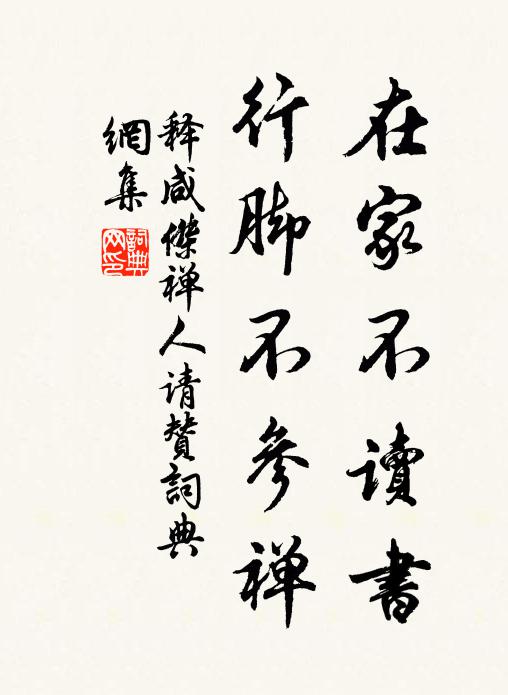 在家不讀書
行脚不參禅
释咸傑禅人请贊詞典
網集
詞典網印